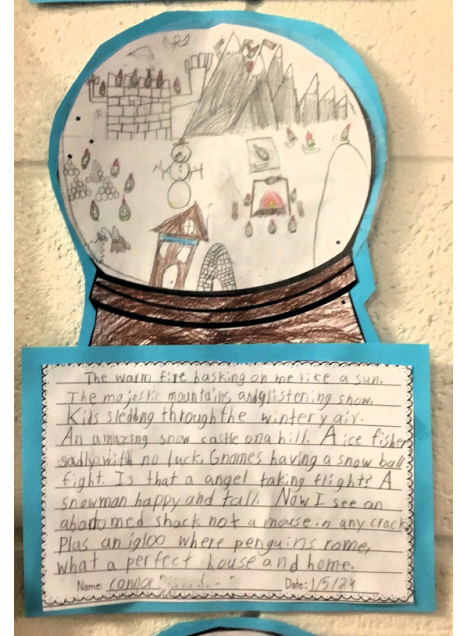 The warm fire basking on me like a sun.
The majestic mountains and glistening snow.
Kids sledding through the wintery air.
An amazing snow castle on a hill. A ice fisher
sadly with no luck. Gnomes having a snow ball
fight. Is that a angel taking flight? A
snowman happy and tall. Now I see an
abandomed shack not a mouse in any crack.
Plus an igloo where penguins rome,
what a perfect house and home.
Name: Connor Date: 1/5/24